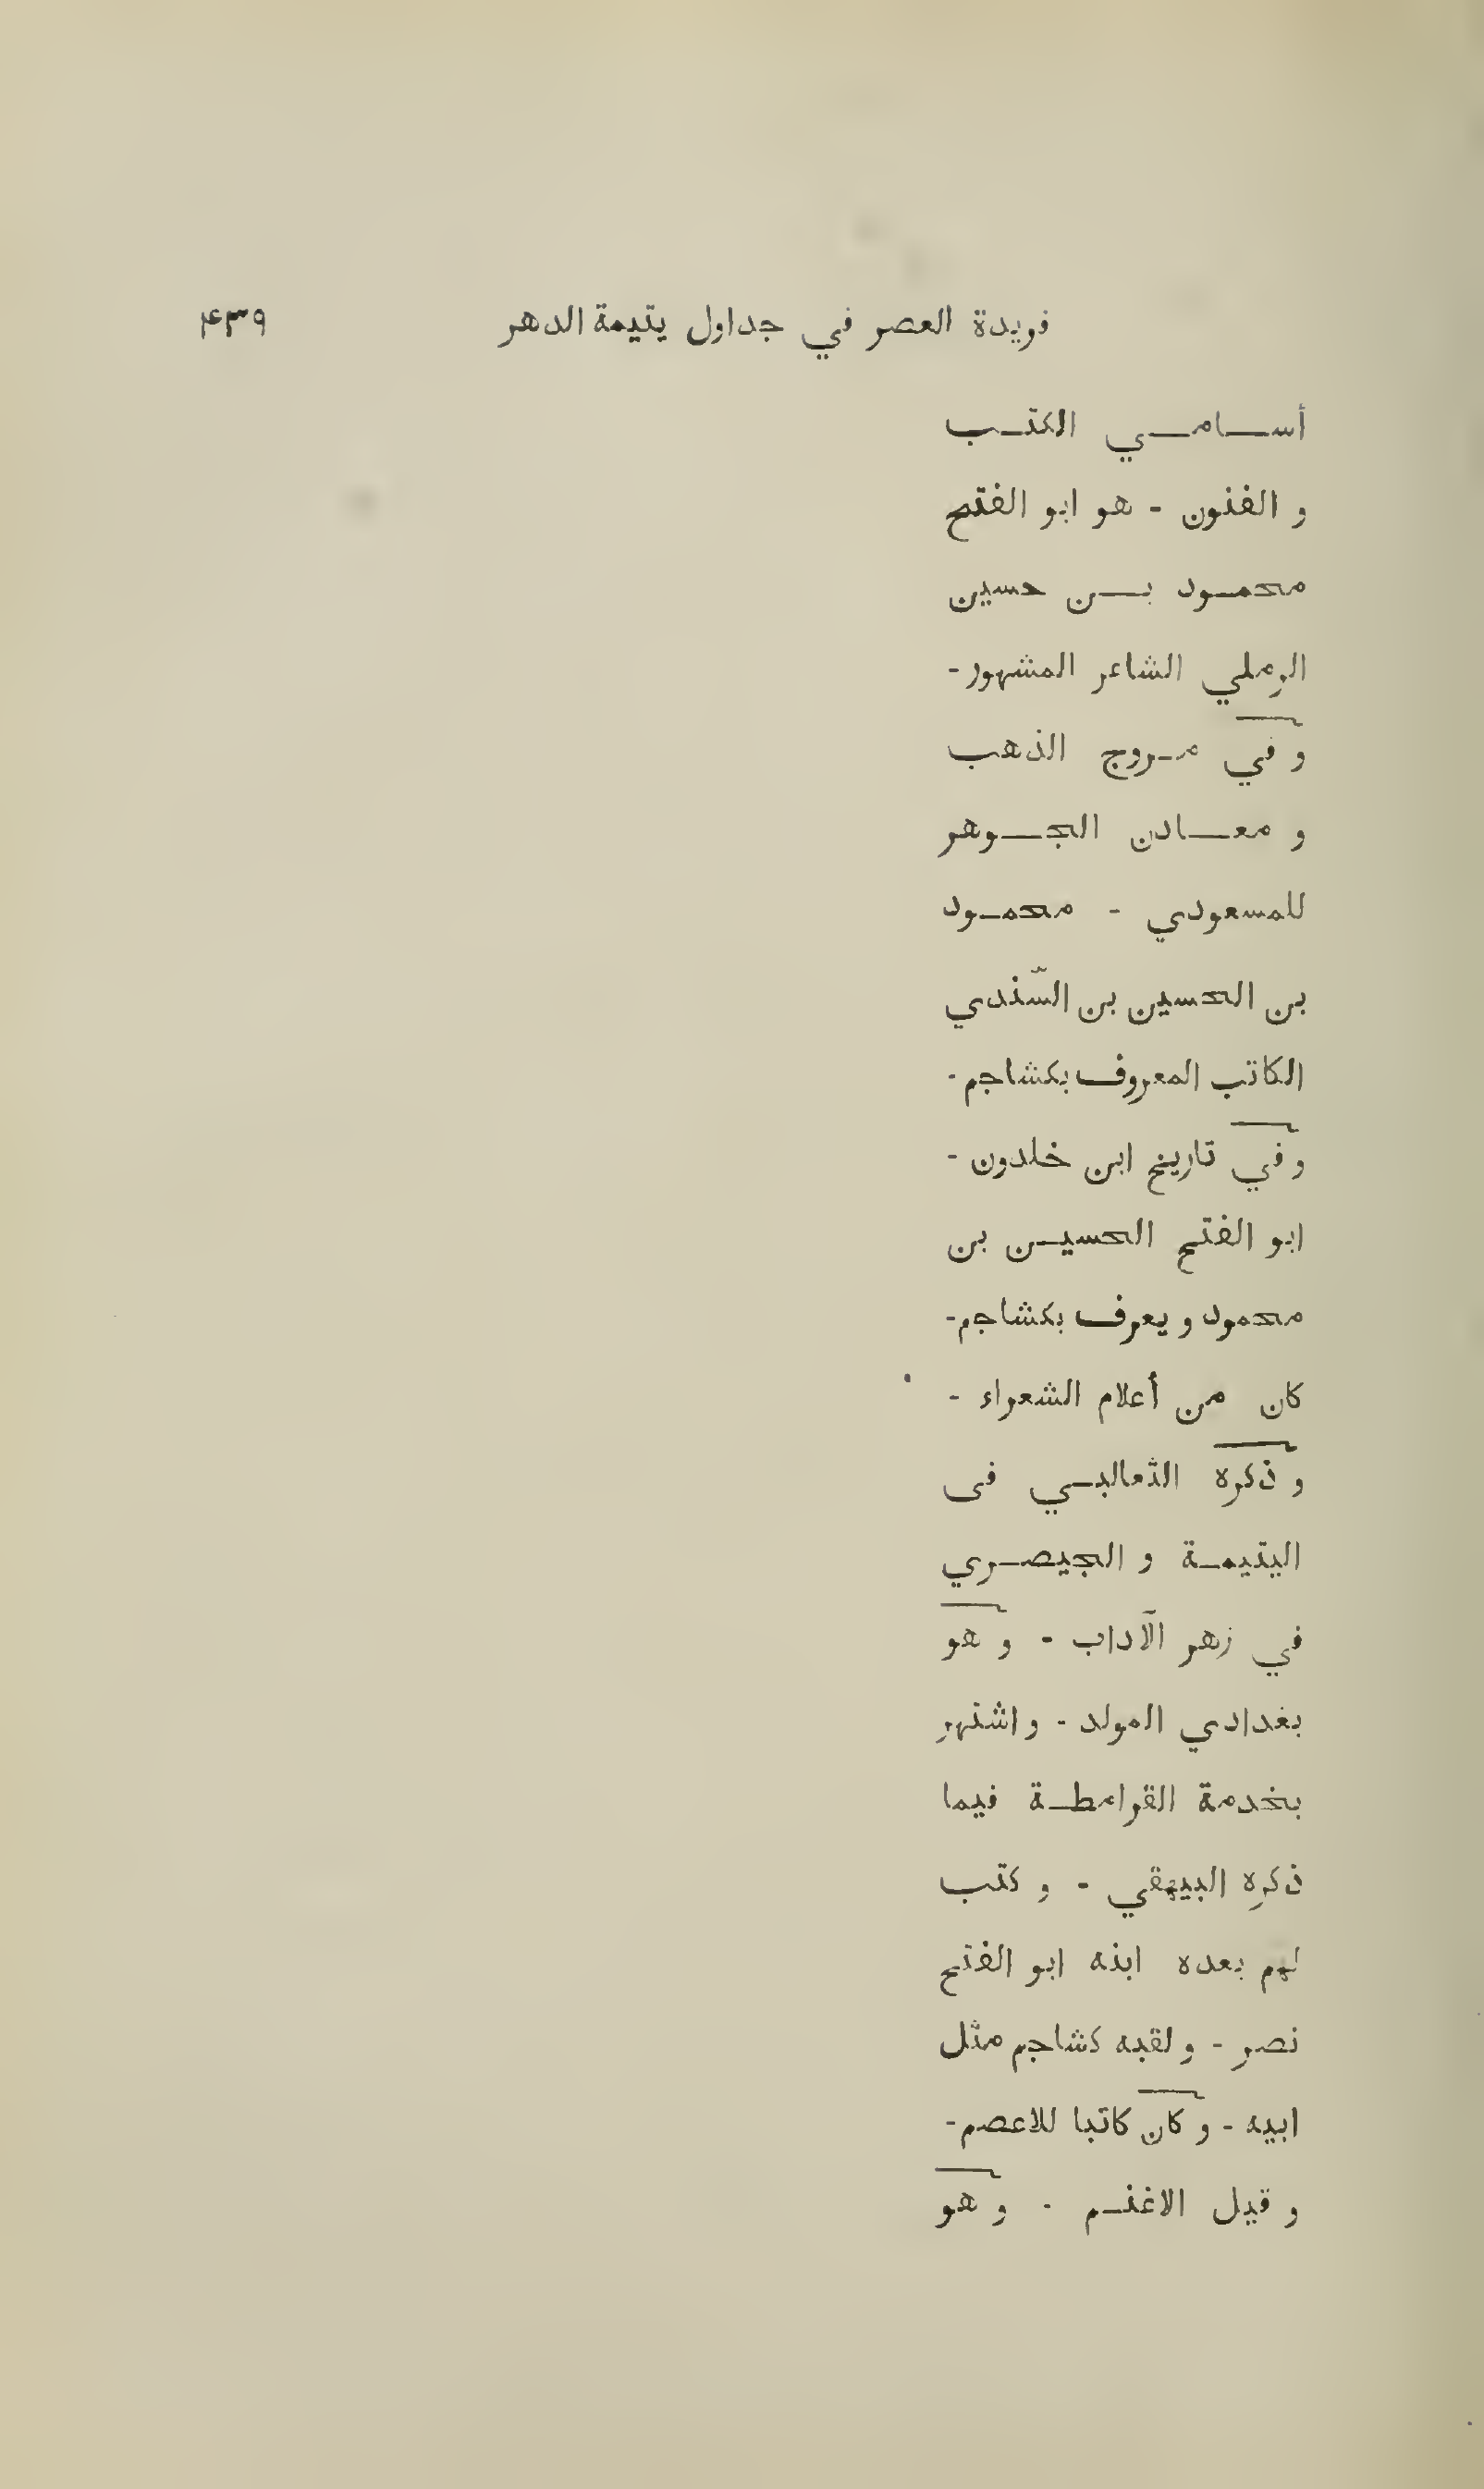 فريدة العصر في جداول يتيمة الدهر ۴۳۹
أســامــي الكتــب
و الفنون - هو ابو الفتح
محمــود بــن حسين
الرملي الشاعر المشهور-
و في مــروج الذهب
و معــادن الجــوهر
للمسعودي - محمــود
بن الحسين بن السّندي
الكاتب المعروف بكشاجم-
و في تاريخ ابن خلدون -
ابو الفتح الحسيــن بن
محمود و يعرف بكشاجم-
كان من أعلام الشعراء -
و ذكره الثعالبــي فى
اليتيمــة و الجيصــري
في زهر الآداب - و هو
بغدادي المولد - و اشتهر
بخدمة القرامطــة فيما
ذكره البيهقي - و كتب
لهم بعده ابنه ابو الفتح
نصر - و لقبه كشاجم مثل
ابيه - و كان كاتبا للاعصم-
و قيل الاغنــم - و هو